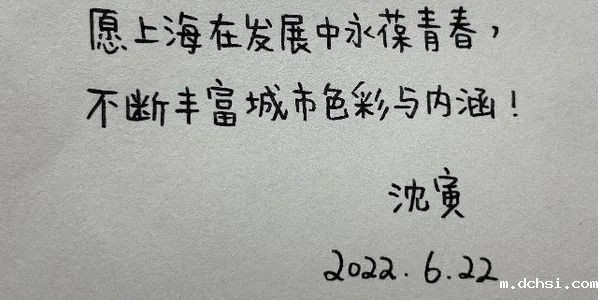 愿上海在发展中永葆青春，
不断丰富城市色彩与内涵！
沈寅
2022.6.22
m.dchsi.com